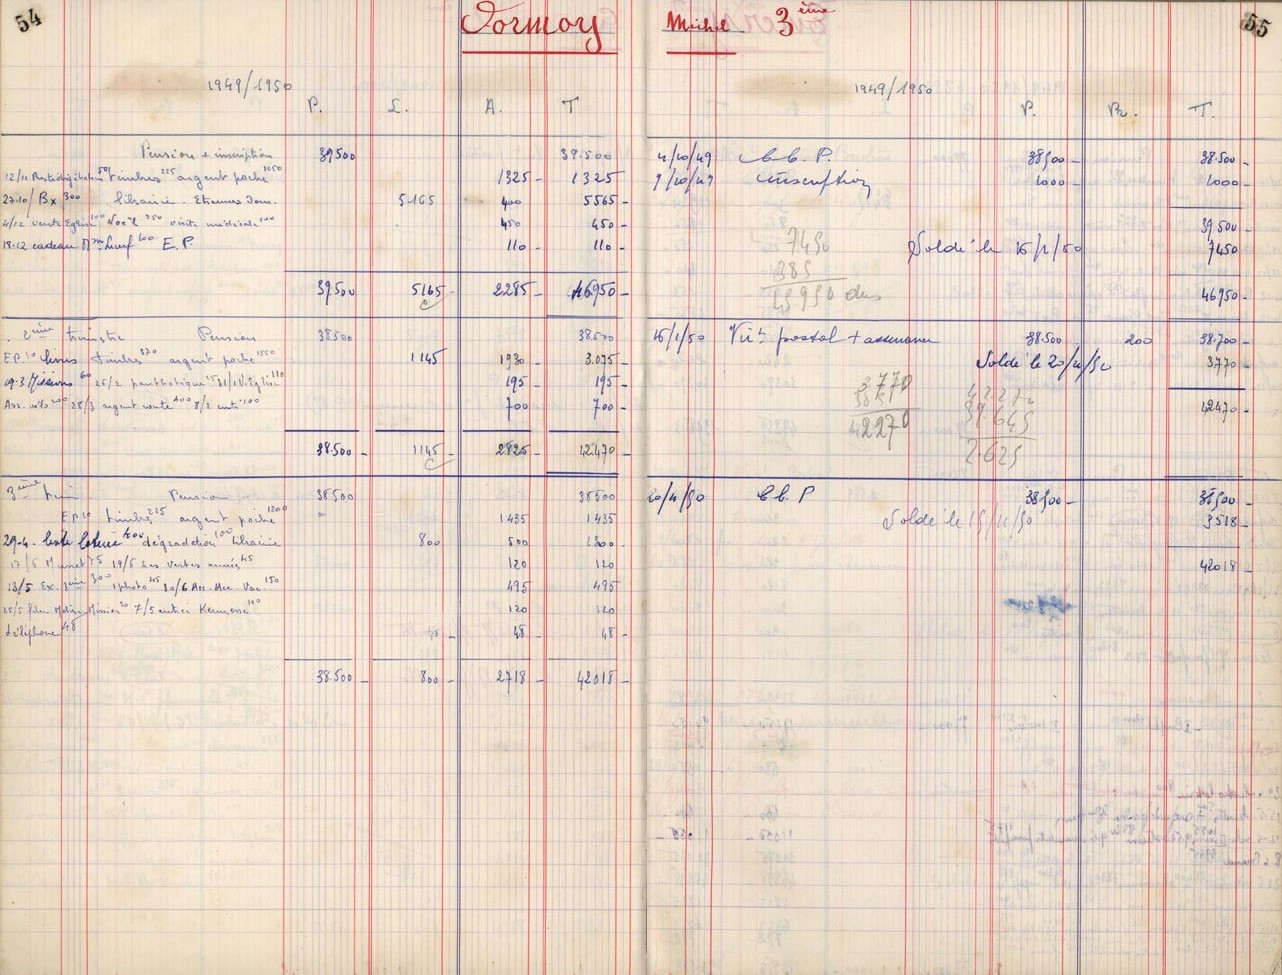 54
Dormoy
1949/1950
P. L. A. T
Pension + inscription 39500 39.500
12/11 Prestidigitation 50 timbres 225 argent poche 1050 1325- 1325
27.10/ Bx 300 librairie. Etrennes Dom. 5165 400 5565-
4/12 vente Eglise 100 Noël 250 visite médicale 100 450 450-
18.12 cadeau 100 E.P. 110- 110-
39.500 5165- 2285- 46950-
2ème trimestre Pension 38.500 38.500
E.P. 10 livres timbres 370 argent poche 1550 1145 1930- 3.075
09-3 Missions 60 25/2 195- 195-
Ass. vélo 200 28/3 argent route 400 8/2 100 700 700-
38.500- 1145- 2825- 42.470-
3ème trim. Pension 38.500 38500
E.P. 10 timbres 225 argent poche 1200 1.435 1.435
29-4. loterie 400 dégradation 100 librairie 800 500 1300.
17/5 Musset 75 19/5 Les vertes années 45 120 120
13/5 Ex. 3ème 300 1 photo 45 10/6 Ass. Acc. Vac. 150 495- 495-
25/5 film Mission 20 7/5 entrée Kermesse 100 120 120
téléphone 48 48- 48-
38.500- 800- 2718- 42018-
55
Michel 3ème
1949/1950
P. Pr. T.
4/10/49 C.C.P. 38500- 38.500-
9/10/49 inscription 1000- 1000-
39.500-
7450 Soldé le 16/1/50 7450
385
45950 dus
46950-
16/1/50 Vir't postal + assurance 38.500- 200 38.700-
Soldé le 20/4/50 3770-
3770 42270
385 39.645
42270 2.625
42470-
20/4/50 C.C.P 38500- 38500-
Soldé le 15/11/50 3518-
42018-